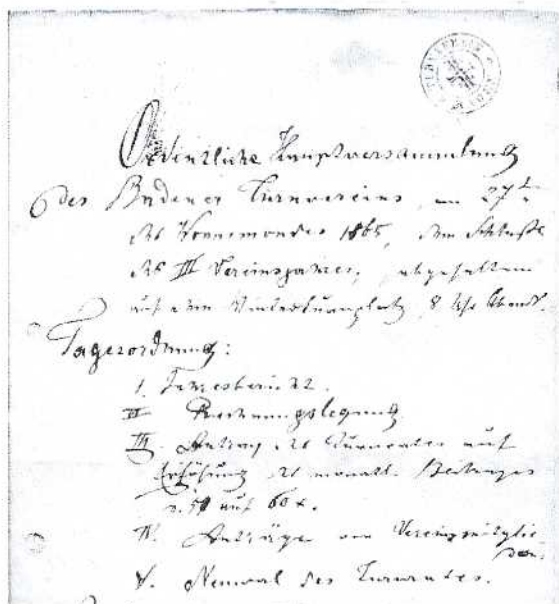 Ordentliche Hauptversammlung
des Badener Turnvereins, am 27t.
des Wonnemondes 1865, dem Schluße
des III Vereinsjares, abgehalten
auf dem Winterturnplatz, 8 Uhr Abends.
Tagesordnung:
I. Jaresbericht.
II Rechnungslegung
III. Antrag des Turnrates auf
Erhöhung des monatl. Beitrages
v. 50 auf 60 x.
IV. Anträge von Vereinsmitglie-
dern.
V. Neuwal des Turnrates.